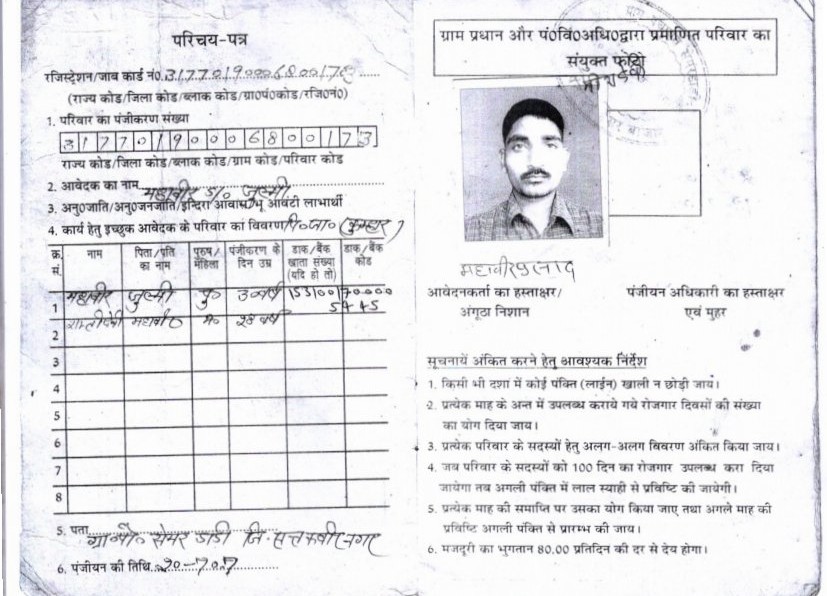 परिचय-पत्र
रजिस्ट्रेशन/जाब कार्ड नं0.
(राज्य कोड/जिला कोड/ब्लाक कोड/ग्रा0पं0कोड/रजि0नं0)
1. परिवार का पंजीकरण संख्या
3 1 7 7 0 1 9 0 0 0 6 8 0 0 1 7 3
राज्य कोड/जिला कोड/ब्लाक कोड/ग्राम कोड/परिवार कोड
2. आवेदक का नाम महावीर S/० जुल्मी
3. अनु0जाति/अनु0जनजाति/इन्दिरा आवास/भू आवंटी लाभार्थी
4. कार्य हेतु इच्छुक आवेदक के परिवार का विवरण (कुम्हार)
क्र. सं. नाम पिता/पति का नाम पुरुष/महिला पंजीकरण के दिन उम्र डाक/बैंक खाता संख्या (यदि हो तो) डाक/बैंक कोड
1 महावीर जुल्मी पु०
2 महावीर म०
3
4
5
6
7
8
5. पता ग्रा०पो० सेमर डाडी जि.
6. पंजीयन की तिथि
ग्राम प्रधान और पं0वि0अधि0द्वारा प्रमाणित परिवार का
संयुक्त फोटो
महावीर प्रसाद
आवेदनकर्ता का हस्ताक्षर/
अंगूठा निशान
पंजीयन अधिकारी का हस्ताक्षर
एवं मुहर
सूचनायें अंकित करने हेतु आवश्यक निर्देश
1. किसी भी दशा में कोई पंक्ति (लाईन) खाली न छोड़ी जाय।
2. प्रत्येक माह के अन्त में उपलब्ध कराये गये रोजगार दिवसों की संख्या
का योग दिया जाय।
3. प्रत्येक परिवार के सदस्यों हेतु अलग-अलग विवरण अंकित किया जाय।
4. जब परिवार के सदस्यों को 100 दिन का रोजगार उपलब्ध करा दिया
जायेगा तब अगली पंक्ति में लाल स्याही से प्रविष्टि की जायेगी।
5. प्रत्येक माह की समाप्ति पर उसका योग किया जाए तथा अगले माह की
प्रविष्टि अगली पंक्ति से प्रारम्भ की जाय।
6. मजदूरी का भुगतान 80.00 प्रतिदिन की दर से देय होगा।